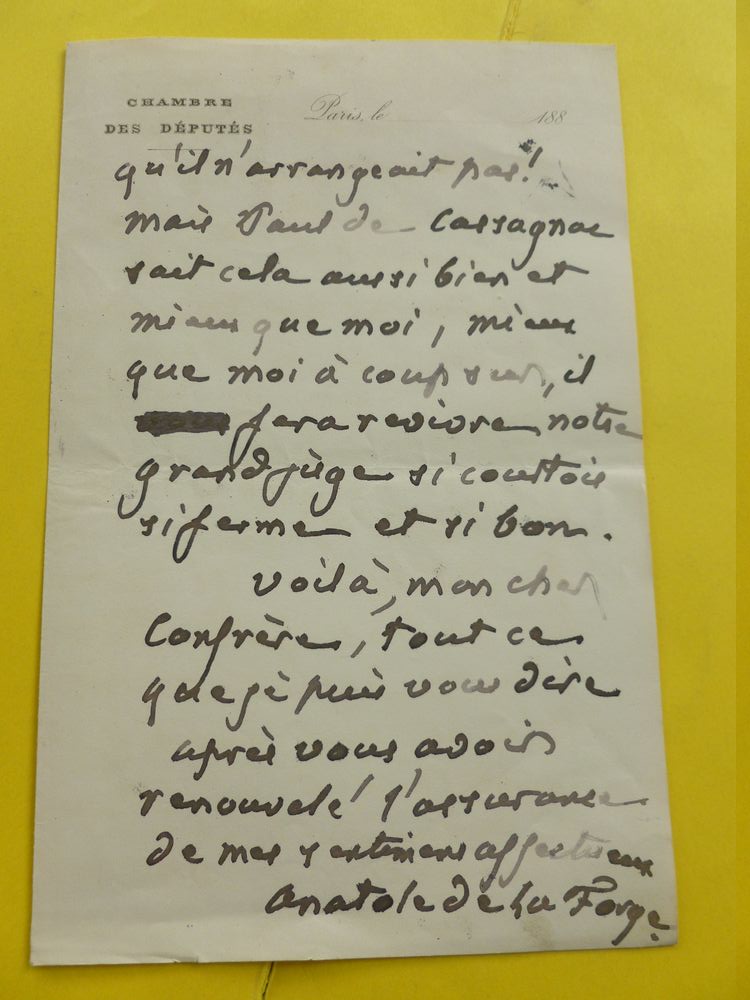 CHAMBRE
DES DÉPUTÉS
Paris, le 188
qu'il n'arrangeait pas!
mais Paul de Cassagnac
sait cela aussi bien et
mieux que moi, mieux
que moi à coup sur, il
fera revivre notre
grand juge si courtois
si ferme et si bon.
Voilà, mon cher
Confrère, tout ce
que je puis vous dire
après vous avoir
renouvelé l'assurance
de mes sentimens affectueux
Anatole de La Forge.